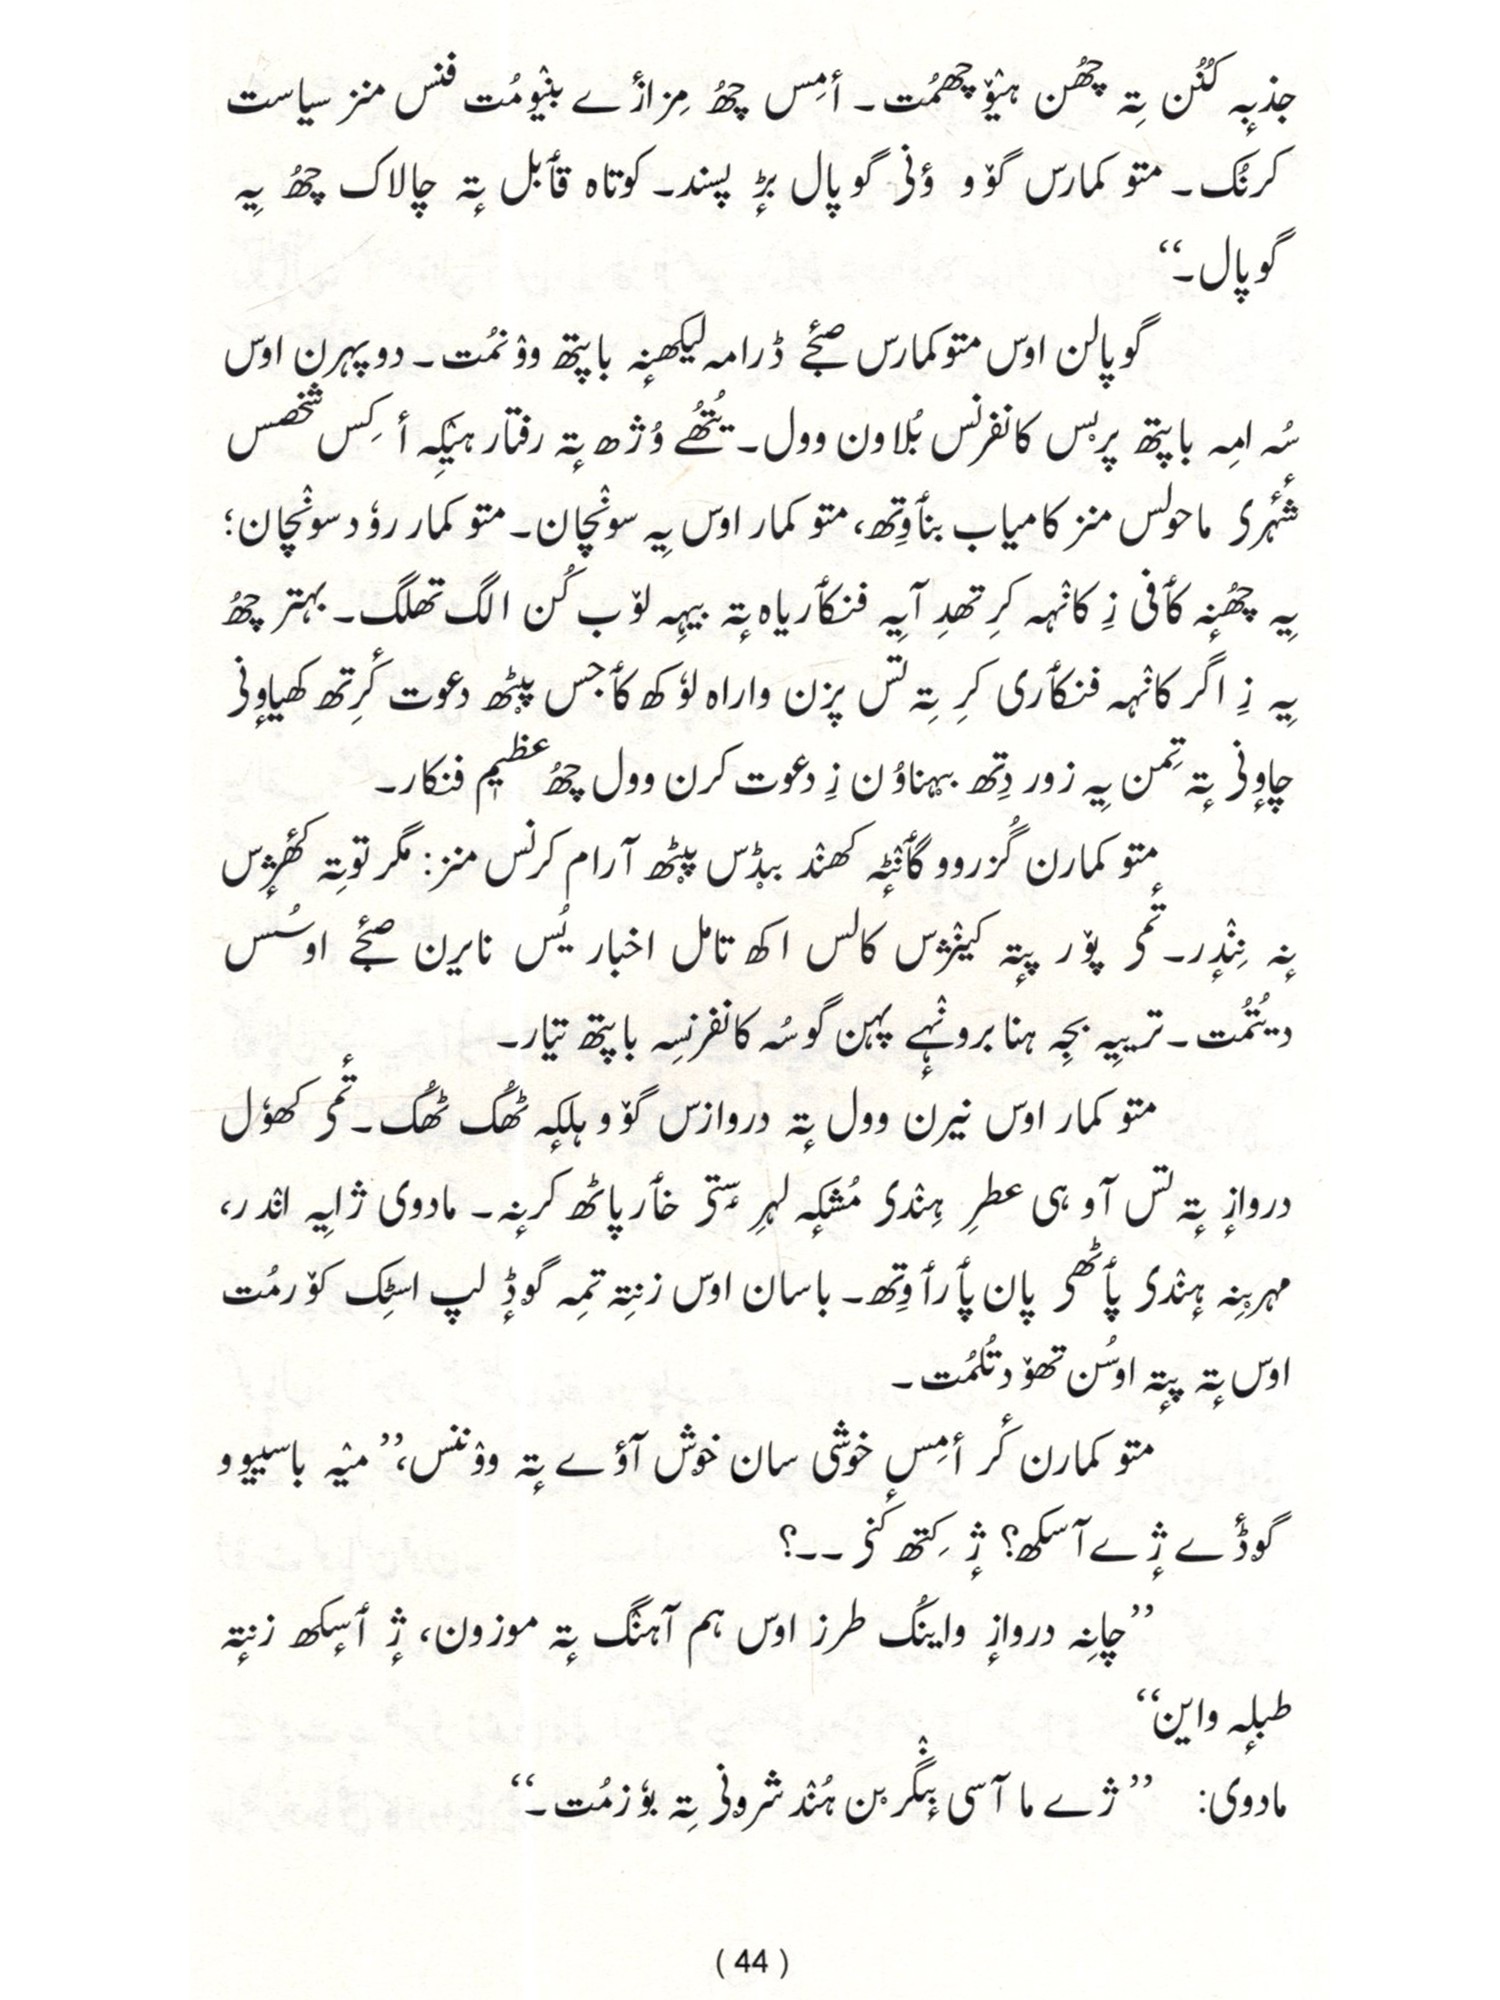 جذبٕہ کُنُن تِہ چھُن ہیٚۆچھمُت۔ أمِس چھُ مِزازٔے بنیٚومُت فنس منز سیاست
کرنُک۔ متو کمارس گوٚو وُنی گوپال بڑٕ پسند۔ کوتاہ قٲبل تہٕ چالاک چھُ یِہ
گوپال۔“
گوپالن اوس متو کمارس صبحٔے ڈرامہ لیکھنہٕ باپتھ ووٚنمُت۔ دوپہرن اوس
سُہ امِہ باپتھ پریس کانفرنس بُلاون وول۔ یُتھُے وُژھ تہٕ رفتار ہیٚکہِ أکِس شخصس
شۂری ماحولس منز کامیاب بنٲوِتھ، متو کمار اوس یِہ سونٛچان۔ متو کمار روٗد سونٛچان؛
یِہ چھُنہٕ کٲفی زِ کانٛہہ کرِ تھدِ آیِہ فنکٲریاہ تہٕ بیہِہ لوٚب کُن الگ تھلگ۔ بہتر چھُ
یِہ زِ اگر کانٛہہ فنکٲری کرِ تِہ تس پزن واراہ لوٗکھ کٲجس پیٚٹھ دعوت کٔرِتھ کھیاونی
چاونی تہٕ تِمن یِہ زور دِتھ بیہناوُن زِ دعوت کرن وول چھُ عظیم فنکار۔
متو کمارن گُزروو گٲنٛٹہٕ کھنٛد بیڈس پیٚٹھ آرام کرنس منز: مگر توتِہ کھٔژٕس
نہٕ نِنٛدٕر۔ تٔمی پوٚر پتہٕ کینٛژس کالس اکھ تامل اخبار یُس نایرن صبحٔے اوسُس
دیُتمُت۔ تریہِ بجہِ ہنا برونٛہے پہن گو سُہ کانفرنسہِ باپتھ تیار۔
متو کمار اوس نیرن وول تہٕ دروازس گوٚو ہلکہٕ ٹھُک ٹھُک۔ تٔمی کھوٗل
دروازٕ تہٕ تس آو ہی عطرِ ہِنٛدی مُشکہٕ لہرِ سٟتی خٲر پاٹھ کرنہٕ۔ مادوی ژایہِ انٛدر،
مہرنہِ ہٕنٛدی پٲٹھی پان پٲرٲوِتھ۔ باسان اوس زنتہٕ تمہِ گوڈٕ لپ اسٹِک کوٚرمُت
اوس تہٕ پتہٕ اوسُن تھوٚد تُلمُت۔
متو کمارن کٔر أمِسٕ خوشی سان خوش آوٕے تہٕ ووٚننس،”میٚہ باسیوو
گوڈٔے ژٕے آسکھ؟ ژٕ کِتھ کَنی ۔۔؟
”چانِہ دروازٕ واینُک طرز اوس ہم آہنگ تہٕ موزون، ژٕ أسٕکھ زنتہٕ
طبلہٕ واین“
مادوی: ”ژے ما آسی بنٛگرٕین ہُنٛد شرونی تِہ بوٗزمُت۔“
( 44 )